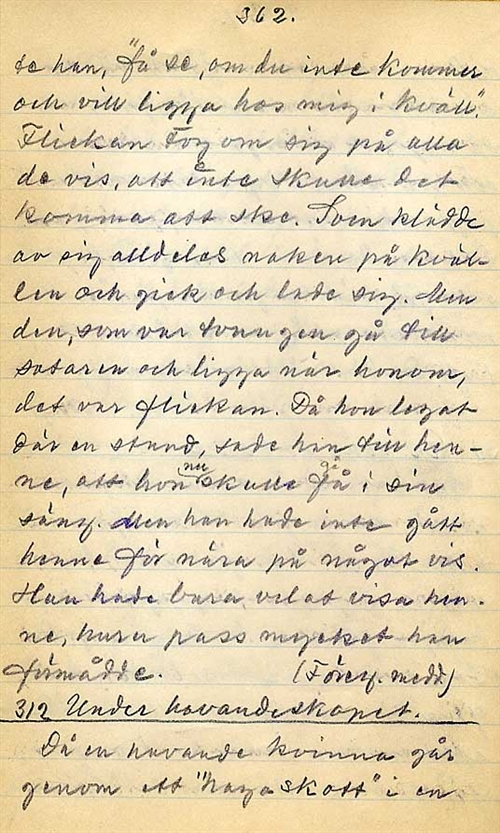 362.
te han, "få se, om du inte kommer
och vill ligga hos mig i kväll".
Flickan tog om sig på alla
de vis, att inte skulle det
komma att ske. Sven klädde
av sig alldeles naken på kväl-
len och gick och lade sig. Men
den, som var tvungen gå till
sotaren och ligga när honom,
det var flickan. Då hon legat
där en stund, sade han till hen-
ne, att hon nu skulle gå i sin
säng. Men han hade inte gått
henne för nära på något vis.
Han hade bara velat visa hen-
ne, huru pass mycket han
förmådde. (Föreg. medd.)
312 Under havandeskapet.
Då en havande kvinna går
genom ett "hagaskott" i en